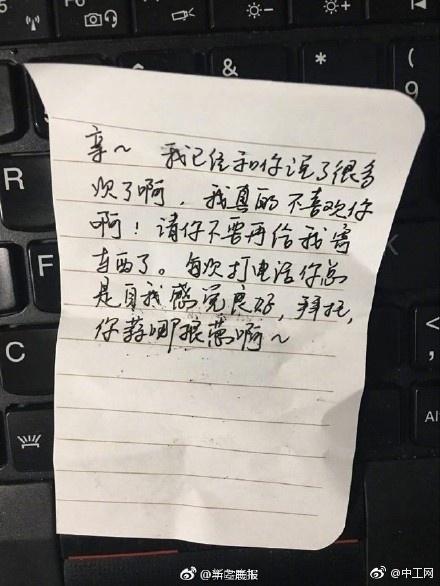 &
*
(
9
R
F
C
亲~ 我已经和你说了很多
次了啊，我真的不喜欢你
啊！请你不要再给我寄
东西了。每次打电话你总
是自我感觉良好，拜托，
你算哪根葱啊~
@中工网